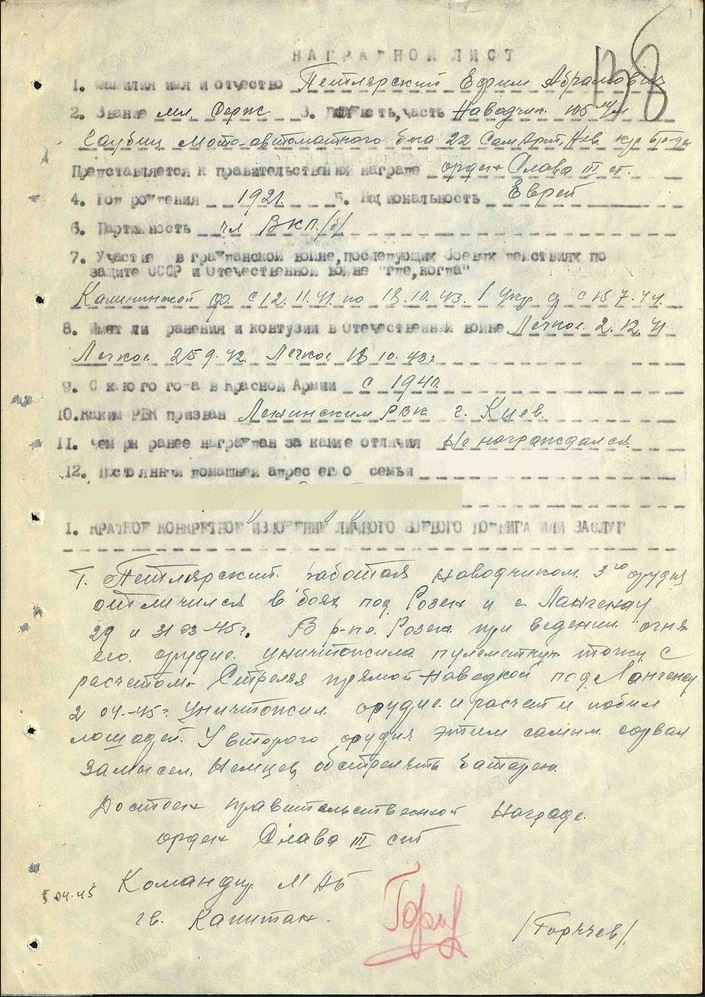 НАГРАДНОЙ ЛИСТ
138
1. Фамилия имя и отчество Петлярский Ефим Абрамович
2. Звание мл. Серж 3. Должность, часть Наводчик 105 м/м
Гаубиц Мото-автоматного б-на 22 Сам.Арт. Нев. кр. бр-ды
Представляется к правительственной награде орден Слава III ст.
4. Год рождения 1921. 5. Национальность Еврей
6. Партийность чл ВКП/б/
7. Участие в гражданской войне, последующих боевых действиях по
защите СССР и Отечественной войне "где, когда"
Калининской фр. с 12.11.41 по 18.10.43. 1 Укр. ф с 15.7.44.
8. Имеет ли ранения и контузии в Отечественной войне Легкое 2.12.41
Легкое 25.9.42 Легкое 18.10.43г
9. С какого года в Красной Армии с 1940.
10. Каким РВК призван Ленинским РВК г. Киев.
11. Чем ранее награжден за какие отличия Не награждался
12. Постоянный домашний адрес его семьи
I. КРАТКОЕ КОНКРЕТНОЕ ИЗЛОЖЕНИЕ ЛИЧНОГО БОЕВОГО ПОДВИГА ИЛИ ЗАСЛУГ
Т. Петлярский работая наводчиком 3го орудия
отличился в боях под Розен и с. Лангенау
29 и 31 03-45г. В р-не Розен при ведении огня
его орудие уничтожила пулеметную точку с
расчетом. Стреляя прямой наводкой под Лангенау
2 04-45г уничтожил орудие и расчет и побил
лошадей. У второго орудия этим самым сорвал
Замысел Немцев обстрелять батарею.
Достоен правительственной Награде.
орден Слава III ст
04.45
Командир МАБ
гв. Капитан.
/Горячев/.